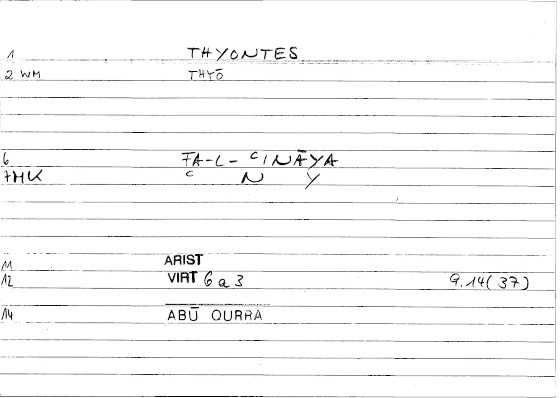 1 THYONTES
2 WM THYŌ
6 FA-L-ᶜINĀYA
7HK ᶜ N Y
11 ARIST
12 VIRT 6 a 3 9.14(37)
14 ABŪ QURRA